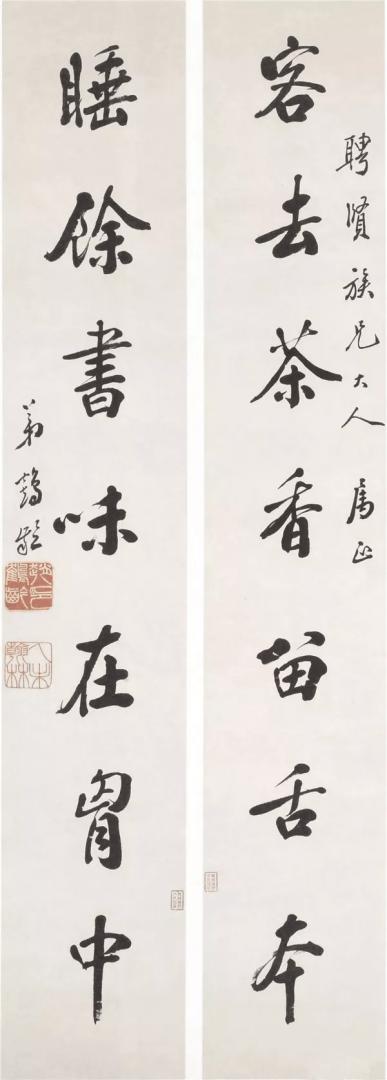 聘賢族兄大人 属正
客去茶香留舌本
睡餘書味在胷中
弟鶴齡